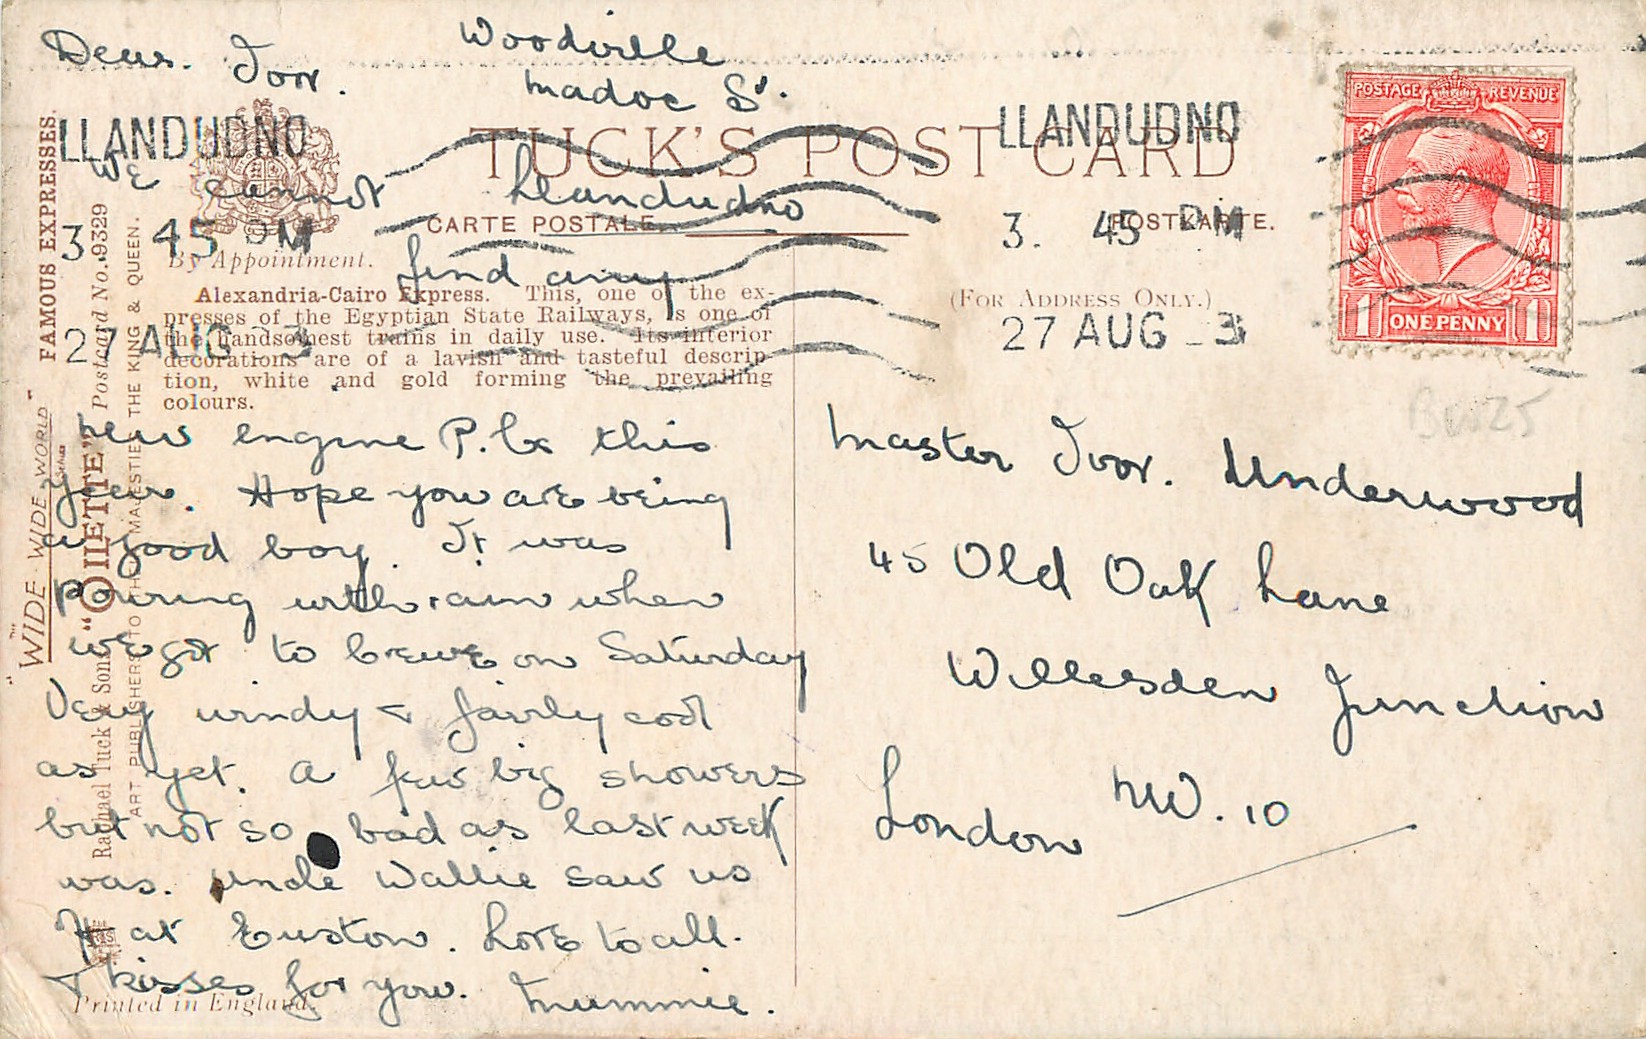 Dear. Ivor.
Woodville
Madoc St.
Llandudno
We cannot
find any
new engine P.Cs this
year. Hope you are being
a good boy. It was
pouring with rain when
we got to Crewe on Saturday
Very windy & fairly cool
as yet. A few big showers
but not so bad as last week
was. Uncle Wallie saw us
at Euston. Love to all.
& kisses for you. Mummie.
Master Ivor. Underwood
45 Old Oak Lane
Willesden Junction
London NW. 10
TUCK'S POST CARD
CARTE POSTALE.
POSTKARTE.
By Appointment.
(FOR ADDRESS ONLY.)
Alexandria-Cairo Express. This, one of the ex-
presses of the Egyptian State Railways, is one of
the handsomest trains in daily use. Its interior
decorations are of a lavish and tasteful descrip-
tion, white and gold forming the prevailing
colours.
FAMOUS EXPRESSES.
"WIDE-WIDE-WORLD"
SERIES
Raphael Tuck & Sons "OILETTE" Postcard No. 9329
ART PUBLISHERS TO THEIR MAJESTIES THE KING & QUEEN.
Printed in England.
LLANDUDNO
3. 45 PM
27 AUG 3
LLANDUDNO
3. 45 PM
27 AUG 3
POSTAGE REVENUE
1 ONE PENNY 1